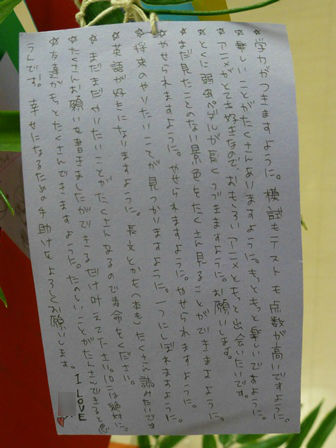 ☆学力がつきますように。模試もテストも点数が高いですように。
☆楽しいことがたくさんありますように。もっともっと楽しいですように。
☆アニメがとても好きなのでおもしろいアニメともっと出会いたいです。
☆とくに弱虫ペダルが長くつづきますように。お願いします。
☆まだ見たことのない景色をたくさん見ることができますように。
☆やせられますように。やせられますように。やせられますように。
☆将来のやりたいことが見つかりますように。一つにしぼれますように。
☆英語が好きになりますように。長文とかを(本も)たくさん読みたいです
☆まだまだやりたいことがたくさんあるので寿命をください。
☆たくさんお願いを書きましたができるだけ叶えて下さい。に は絶対に。
☆友達がもっとたくさんできますように。たのしいことがたくさんできると
うんです。幸せになるための手助けをよろしくお願いします。
I LOVE